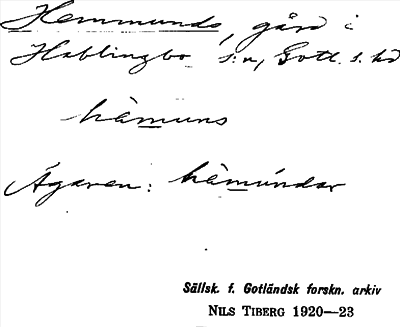 Hemmunds, gård i
Hablingbo s:n, Gotl. s. hd
hè̱muns
Ägaren: hè̱múndar
Sällsk. f. Gotländsk forskn. arkiv
NILS TIBERG 1920—23